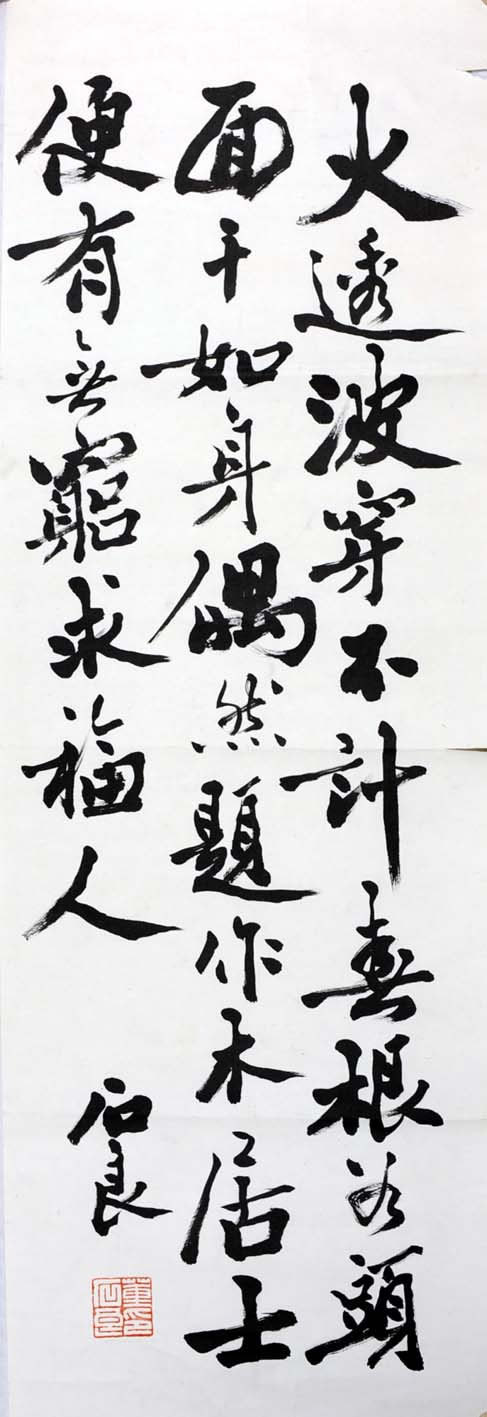 火透波穿不計春根頭
面干如身偶然題作木居士
便有無窮求福人
石良